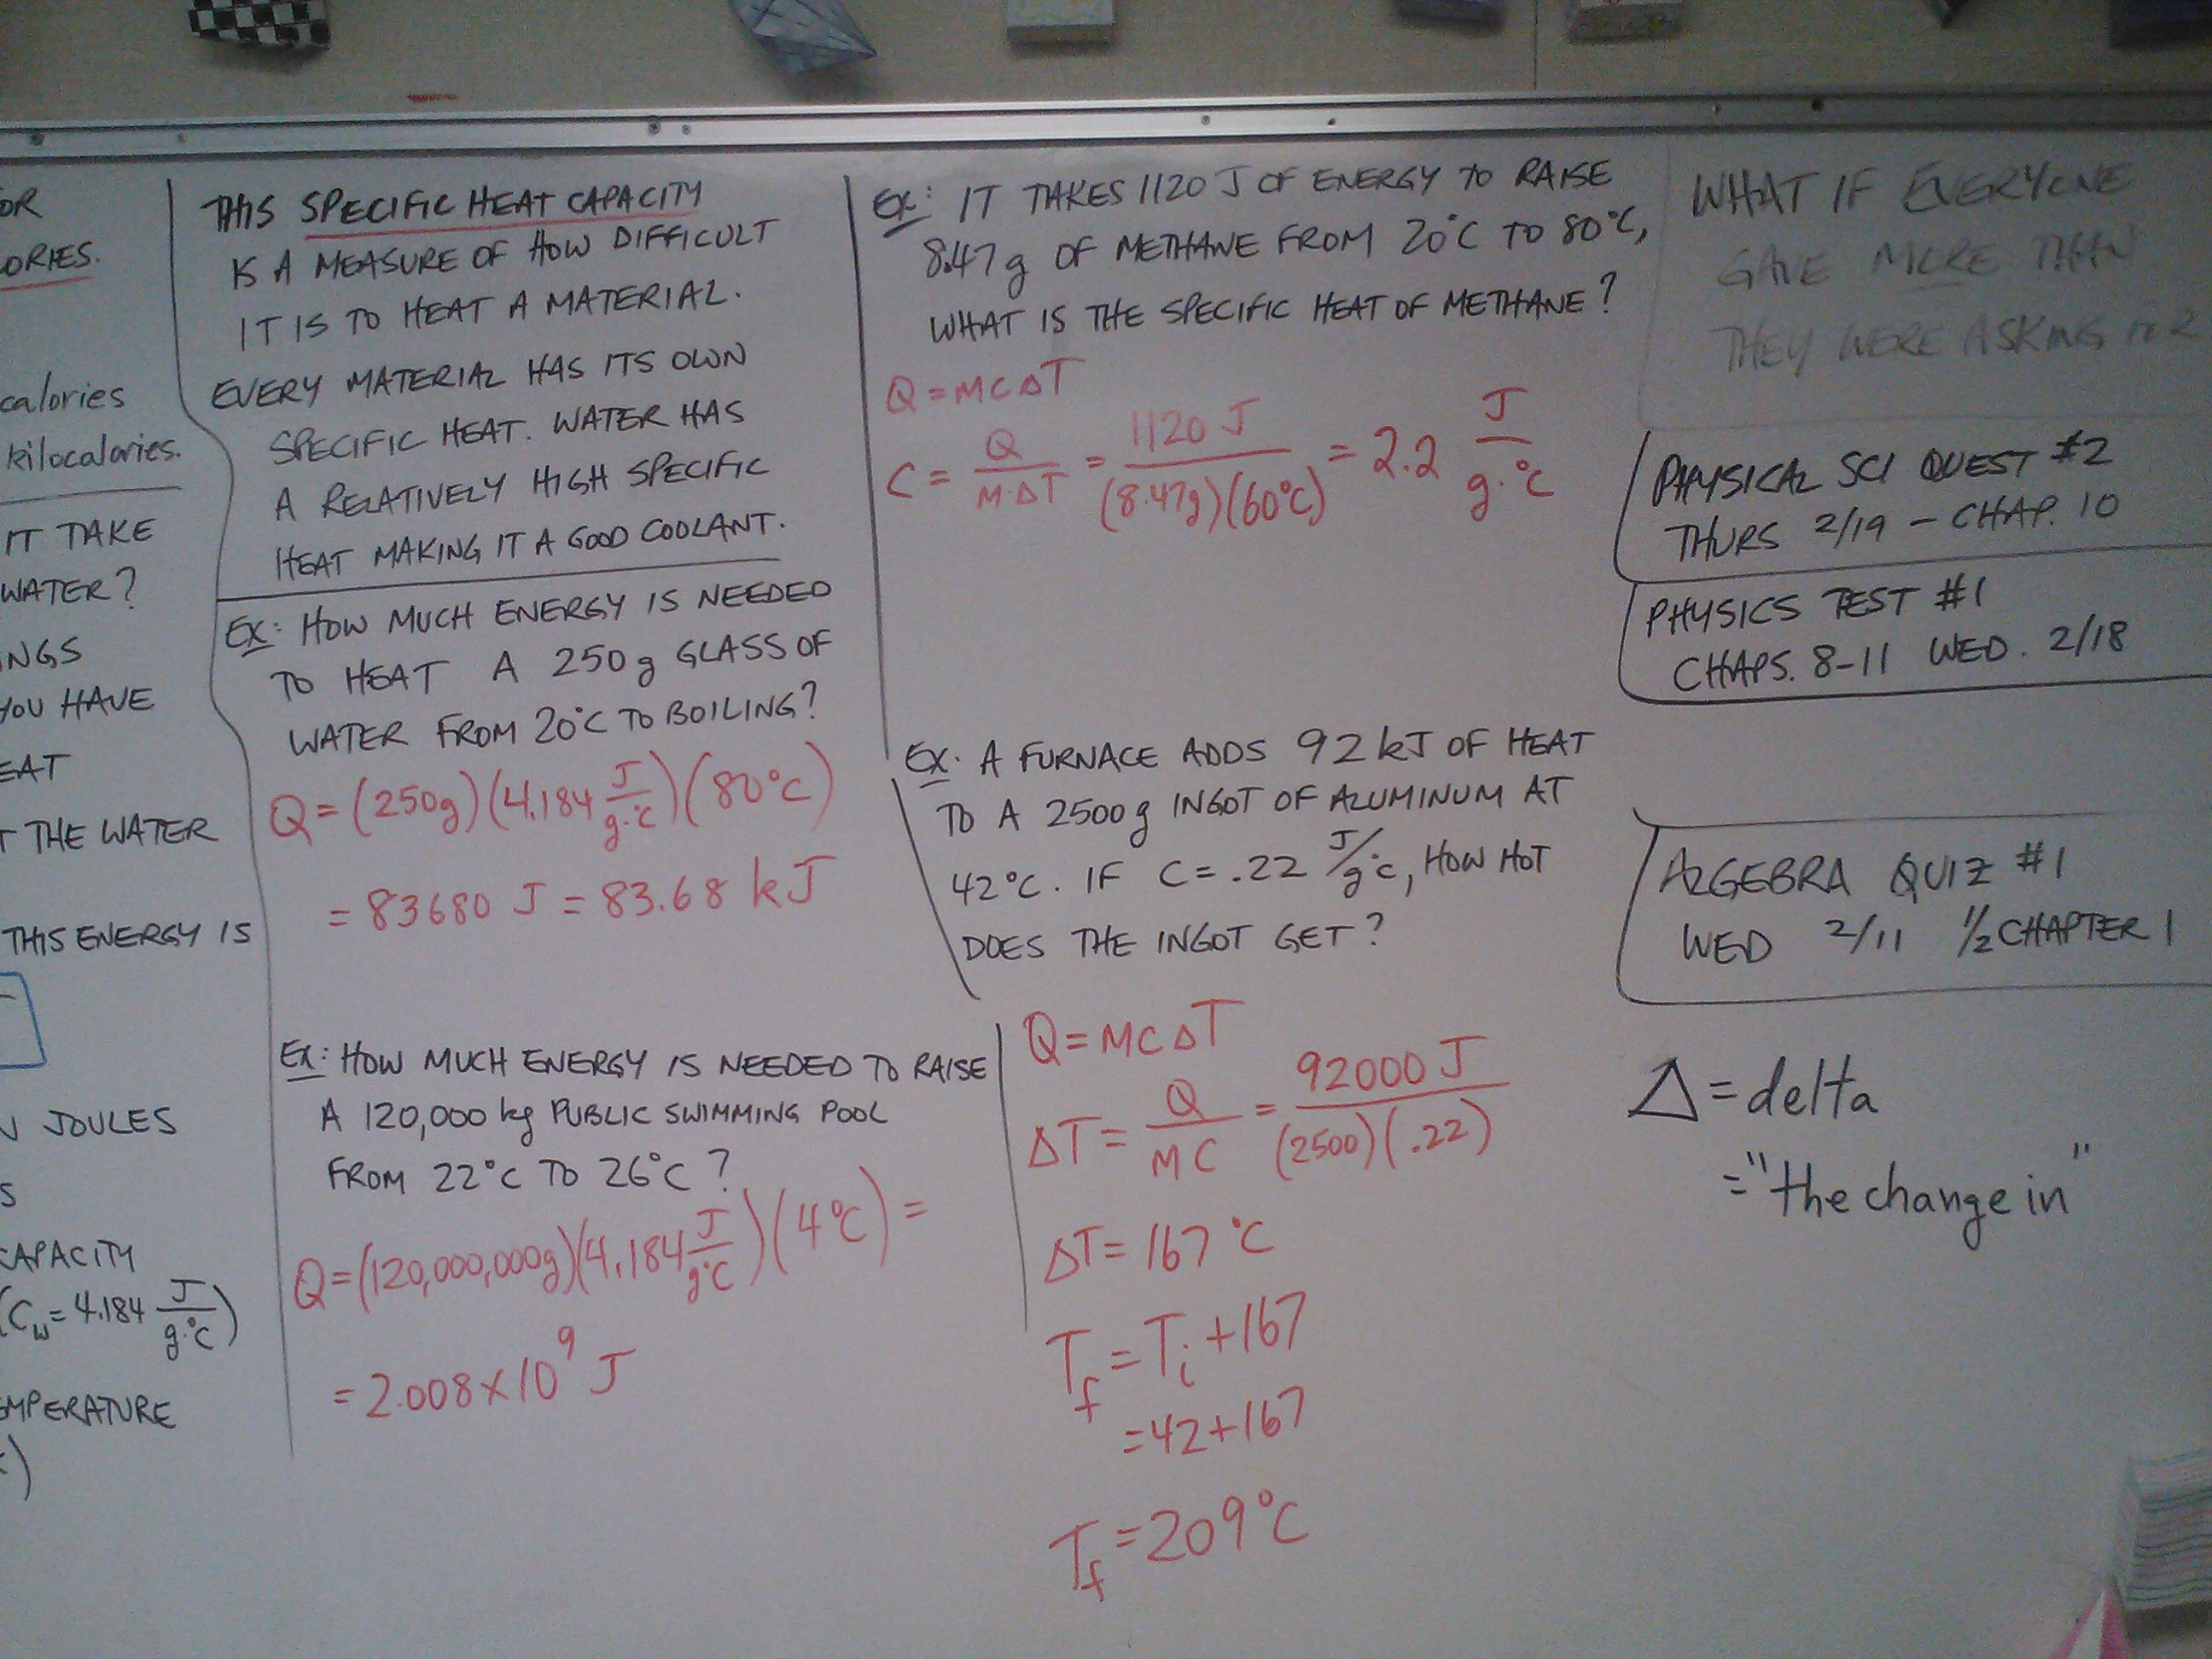 OR
ORIES.
calories
kilocalories.
IT TAKE
WATER?
INGS
YOU HAVE
EAT
T THE WATER
THIS ENERGY IS
N JOULES
S
CAPACITY
(Cw = 4.184 J/g·°C)
EMPERATURE
)
THIS SPECIFIC HEAT CAPACITY
IS A MEASURE OF HOW DIFFICULT
IT IS TO HEAT A MATERIAL.
EVERY MATERIAL HAS ITS OWN
SPECIFIC HEAT. WATER HAS
A RELATIVELY HIGH SPECIFIC
HEAT MAKING IT A GOOD COOLANT.
EX: HOW MUCH ENERGY IS NEEDED
TO HEAT A 250g GLASS OF
WATER FROM 20°C TO BOILING?
Q = (250g)(4.184 J/g·°C)(80°C)
= 83680 J = 83.68 kJ
EX: HOW MUCH ENERGY IS NEEDED TO RAISE
A 120,000 kg PUBLIC SWIMMING POOL
FROM 22°C TO 26°C?
Q = (120,000,000g)(4.184 J/g·°C)(4°C) =
= 2.008 x 10⁹ J
EX: IT TAKES 1120 J OF ENERGY TO RAISE
8.47g OF METHANE FROM 20°C TO 80°C,
WHAT IS THE SPECIFIC HEAT OF METHANE?
Q = MCΔT
C = Q/M·ΔT = 1120 J/(8.47g)(60°C) = 2.2 J/g·°C
EX. A FURNACE ADDS 92 kJ OF HEAT
TO A 2500g INGOT OF ALUMINUM AT
42°C. IF C = .22 J/g°C, HOW HOT
DOES THE INGOT GET?
Q = MCΔT
ΔT = Q/MC = 92000 J/(2500)(.22)
ΔT = 167 °C
Tf = Ti + 167
= 42 + 167
Tf = 209°C
WHAT IF EVERYONE
GAVE MORE THAN
THEY WERE ASKING FOR
PHYSICAL SCI QUEST #2
THURS 2/19 - CHAP. 10
PHYSICS TEST #1
CHAPS. 8-11 WED. 2/18
ALGEBRA QUIZ #1
WED 2/11 1/2 CHAPTER 1
Δ = delta
= "the change in"